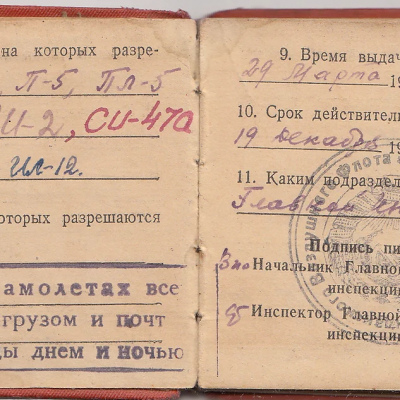 на которых разре-
П-5, Пл-5
-2, СИ-47а
Ил-12.
которых разрешаются
амолетах все
грузом и почт
ды днем и ночью
9. Время выдач
29 Марта 19
10. Срок действительн
19 декабря 19
11. Каким подраздел
Главной Ин
Подпись пи
Начальник Главной
инспекции
Инспектор Главной
инспекции
Воздушного Флота